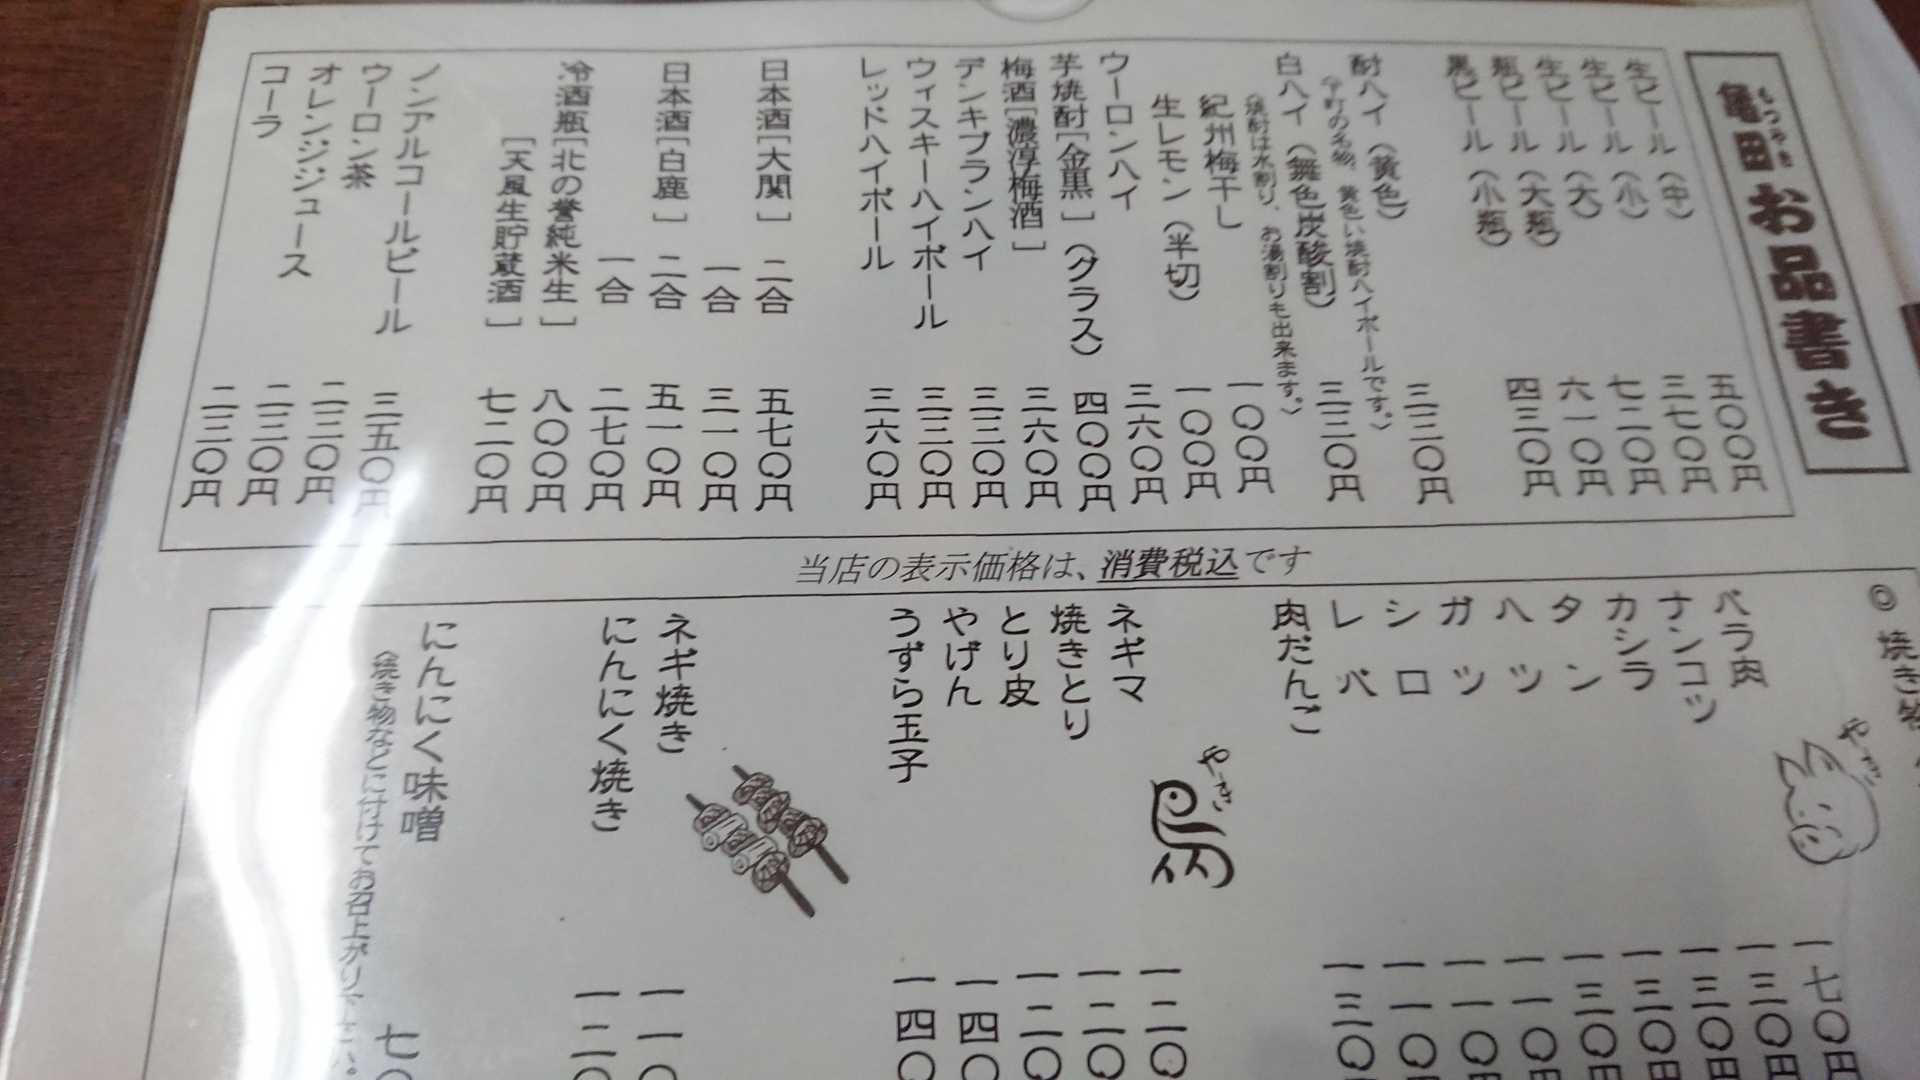 亀田 お品書き
もつやき
生ビール（中） 五〇〇円
生ビール（小） 三七〇円
生ビール（大） 七二〇円
瓶ビール（大瓶） 六一〇円
黒ビール（小瓶） 四三〇円
酎ハイ（黄色） 三二〇円
黄色い焼酎ハイボールです。〉
白ハイ（無色炭酸割） 三二〇円
〈焼酎は水割り、お湯割りも出来ます。〉
紀州梅干し 一〇〇円
生レモン（半切） 一〇〇円
ウーロンハイ 三六〇円
芋焼酎［金黒］（グラス） 四〇〇円
梅酒［濃淳梅酒］ 三六〇円
デンキブランハイ 三三〇円
ウィスキーハイボール 三三〇円
レッドハイボール 三六〇円
日本酒［大関］ 二合 五七〇円
一合 三一〇円
日本酒［白鹿］ 二合 五一〇円
一合 二七〇円
冷酒瓶［北の誉純米生］ 八〇〇円
［天風生貯蔵酒］ 七二〇円
ノンアルコールビール 三五〇円
ウーロン茶 二三〇円
オレンジジュース 二三〇円
コーラ 二三〇円
当店の表示価格は、消費税込です
◎ 焼き物
やーきっ
バラ肉 一七〇円
ナンコツ 一三〇円
カシラ 一三〇円
タン 一三〇円
ハツ 一三〇円
ガツ 一一〇
シロ 一一〇
レバ 一一〇
肉だんご 一三〇
やーき
ネギマ 一二〇
焼きとり 一二〇
とり皮 一二〇
やげん 一四〇
うずら玉子 一四〇
ネギ焼き 一一〇
にんにく焼き 一二〇
にんにく味噌 七〇
〈焼き物などに付けてお召上がり下さい。